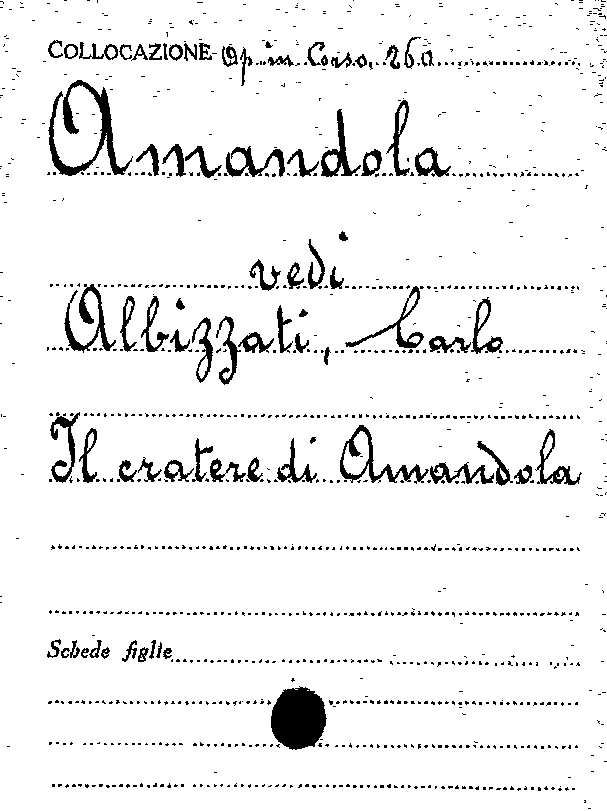 COLLOCAZIONE Op. in Corso, 260
Amandola
vedi
Albizzati, Carlo
Il cratere di Amandola
Schede figlie